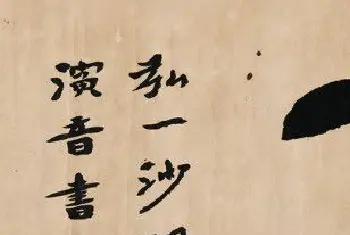 弘一沙
演音書